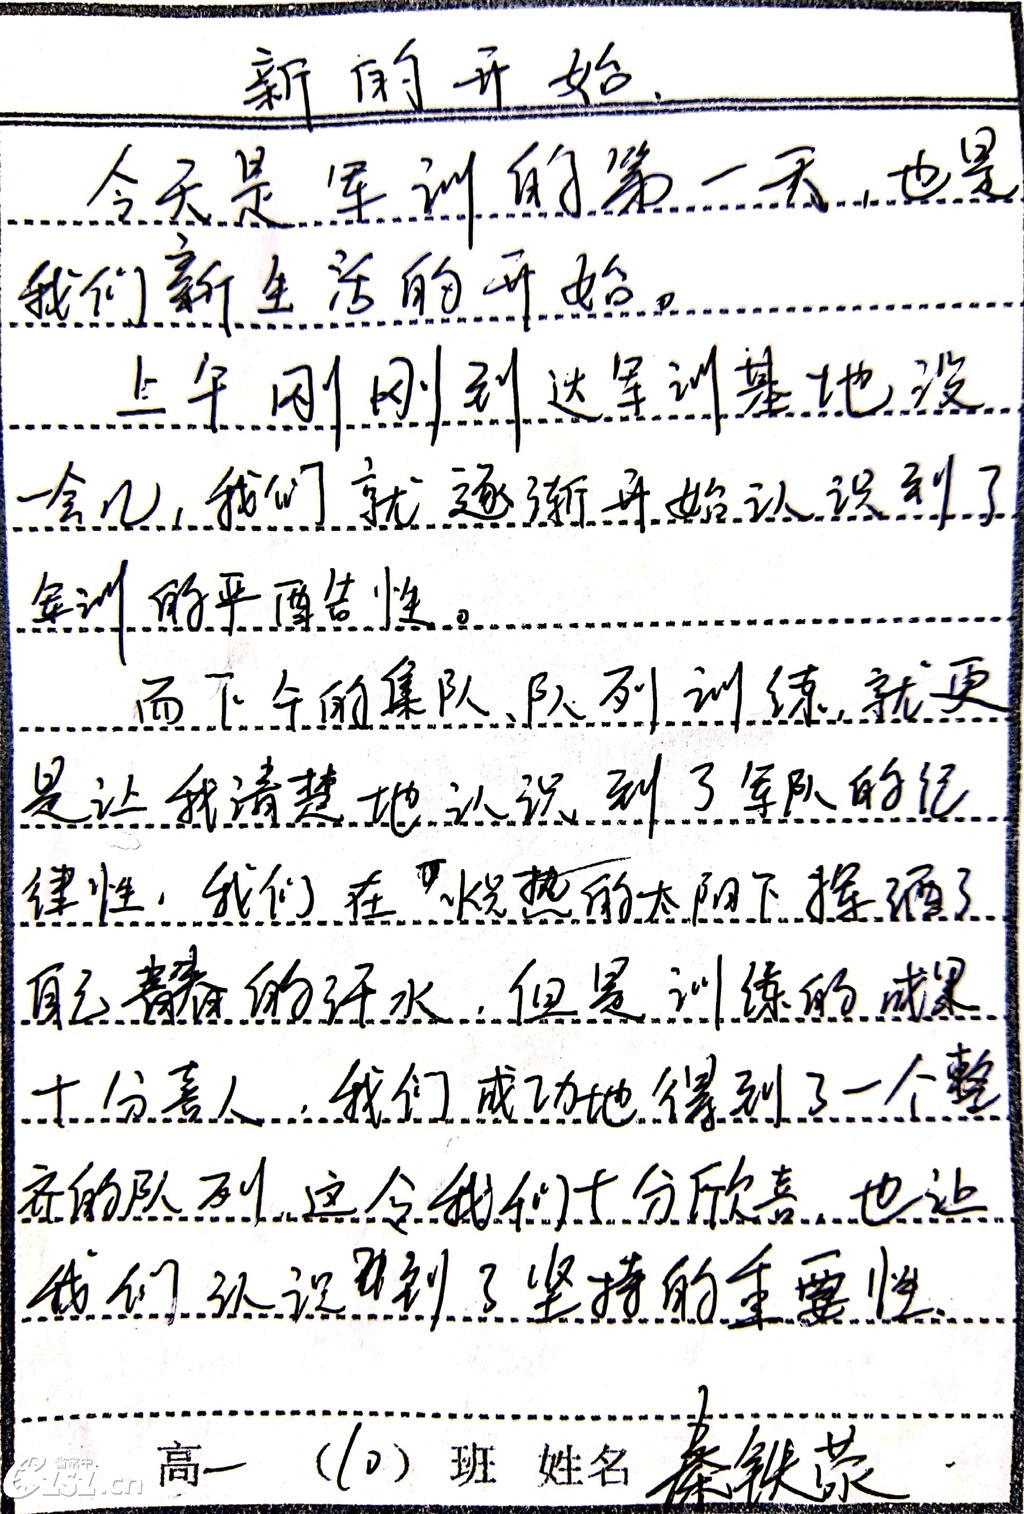 新的开始.
今天是军训的第一天,也是
我们新生活的开始。
上午刚刚到达军训基地没
一会儿,我们就逐渐开始认识到了
军训的严酷性。
而下午的集队、队列训练,就更
是让我清楚地认识到了军队的纪
律性,我们在热的太阳下挥洒了
自己青春的汗水,但是训练的成果
十分喜人,我们成功地得到了一个整
齐的队列,这令我们十分欣喜,也让
我们认识到了坚持的重要性.
高一(10)班 姓名 秦铁
省常中
e1s1.cn